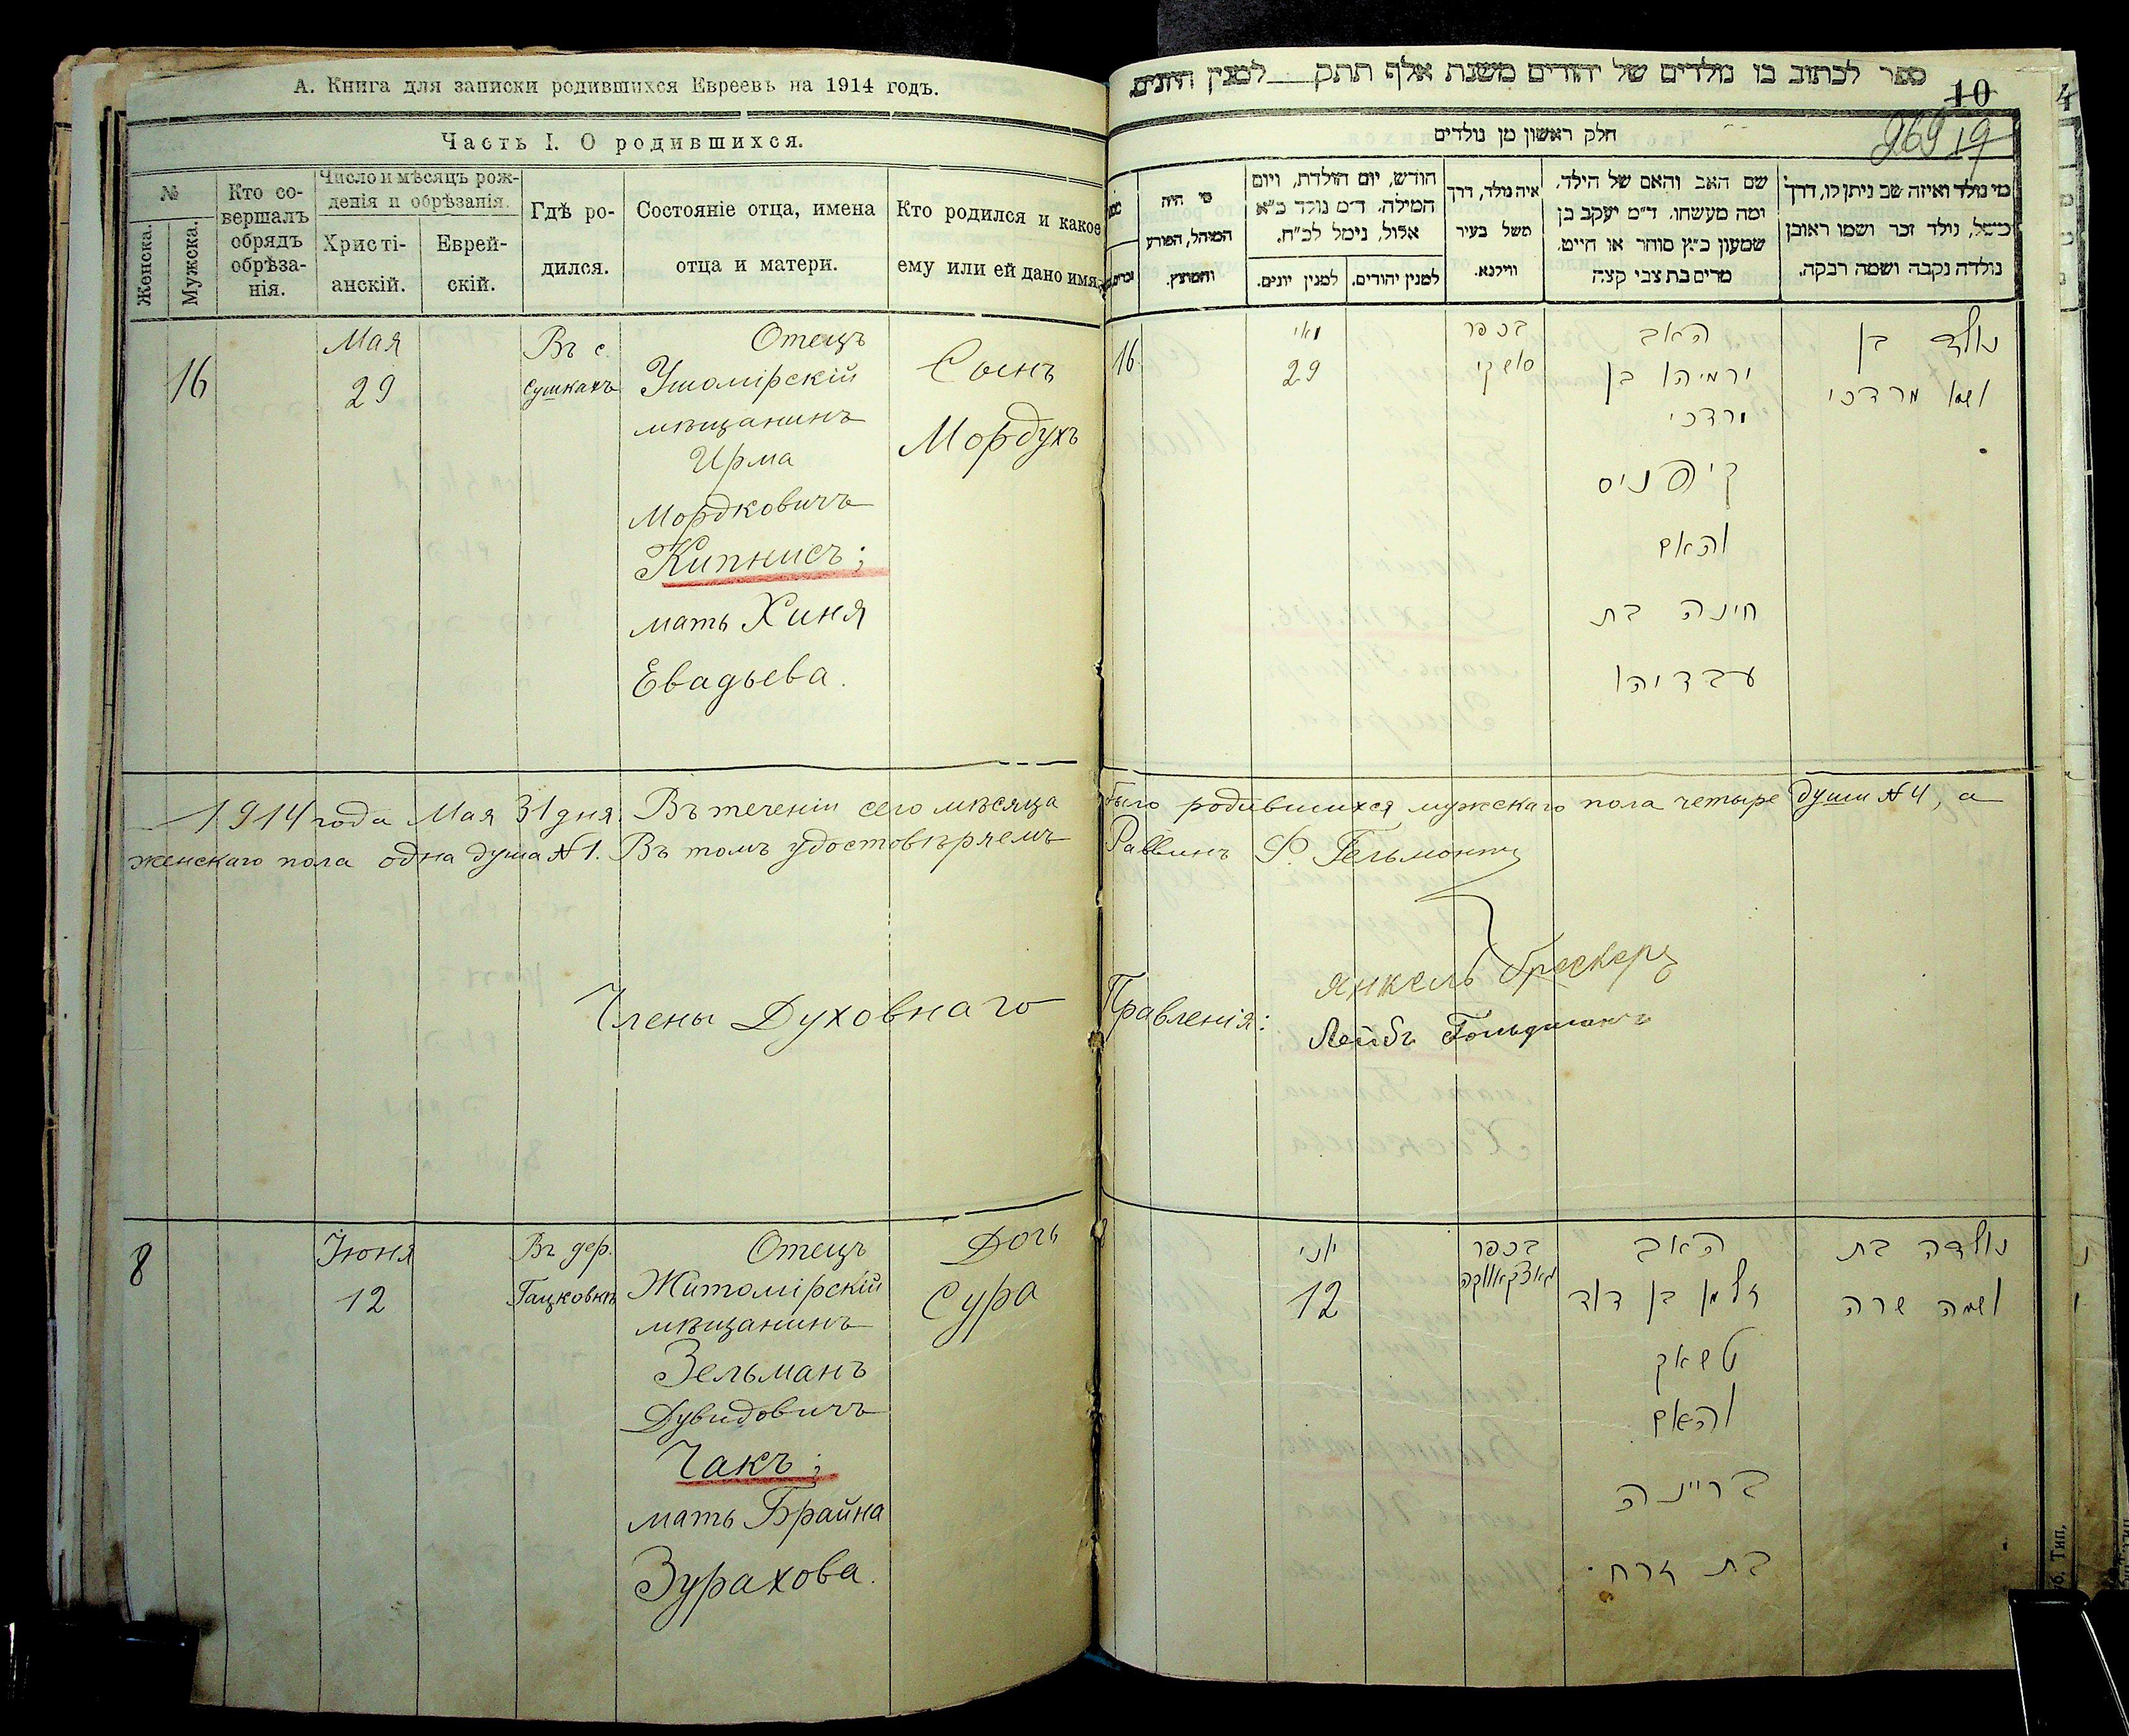 А. Книга для записки родившихся Евреевъ на 1914 годъ.
Часть I. О родившихся.
№
Женска.
Мужска.
Кто со-
вершалъ
обрядъ
обрѣза-
нія.
Число и мѣсяцъ рож-
денія и обрѣзанія.
Христі-
анскій.
Еврей-
скій.
Гдѣ ро-
дился.
Состояніе отца, имена
отца и матери.
Кто родился и какое
ему или ей дано имя.
16
Мая
29
Въ с.
Сушкахъ
Отецъ
Ушомірскій
мѣщанинъ
Ирма
Мордковичъ
Кипнисъ;
мать Хиня
Евадьева.
Сынъ
Мордухъ
1914 года Мая 31 дня. Въ теченіи сего мѣсяца было родившихся мужскаго пола четыре души № 4, а
женскаго пола одна душа № 1. Въ томъ удостовѣряемъ Раввинъ
Члены Духовнаго Правленія:
Янкель
Лейбъ Гольдманъ
8
Іюня
12
Въ дер.
Гацковкѣ
Отецъ
Житомірскій
мѣщанинъ
Зельманъ
Дувидовичъ
Чакъ;
мать Брайна
Зурахова.
Дочь
Сура
ספר לכתוב בו נולדים של יהודים משנת אלף תתק למנין היונים
10
269 19
חלק ראשון מן נולדים
מי נולד ואיזה שם ניתן לו, דרך
משל, נולד זכר ושמו ראובן
נולדה נקבה ושמה רבקה.
שם האב והאם של הילד.
ומה מעשהו. ד״מ יעקב בן
שמעון כ״ץ סוחר או חייט.
מרים בת צבי קצה
איה נולד, דרך
משל בעיר
ווילנא.
חודש, יום הולדת, ויום
המילה. ד״מ נולד כ״א
אלול, נימל לכ״ח.
למנין יהודים.
למנין יונים.
מי היה
המוהל, הפורע
והמוצץ.
נולד בן
ושמו מרדכי
האב
ירמיהו בן
מרדכי
קיפניס
והאם
חינה בת
עבדיהו
בכפר
סושקי
מאי
29
16
נולדה בת
ושמה שרה
האב
זלמן בן דוד
טשאק
והאם
בריינה
בת זרח
בכפר
גאצקאווקה
יוני
12